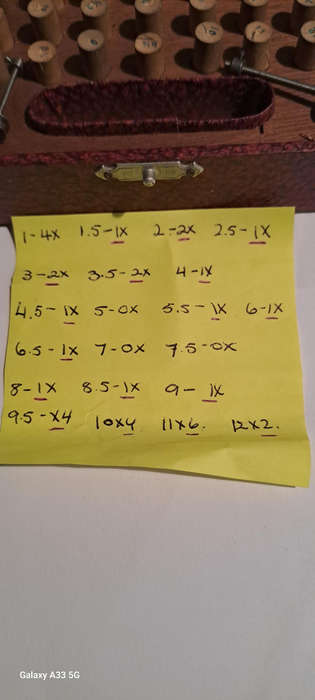 1-4X 1.5-1X 2-2X 2.5-1X
3-2X 3.5-2X 4-1X
4.5-1X 5-0X 5.5-1X 6-1X
6.5-1X 7-0X 7.5-0X
8-1X 8.5-1X 9-1X
9.5-X4 10X4. 11X6. 12X2.
Galaxy A33 5G